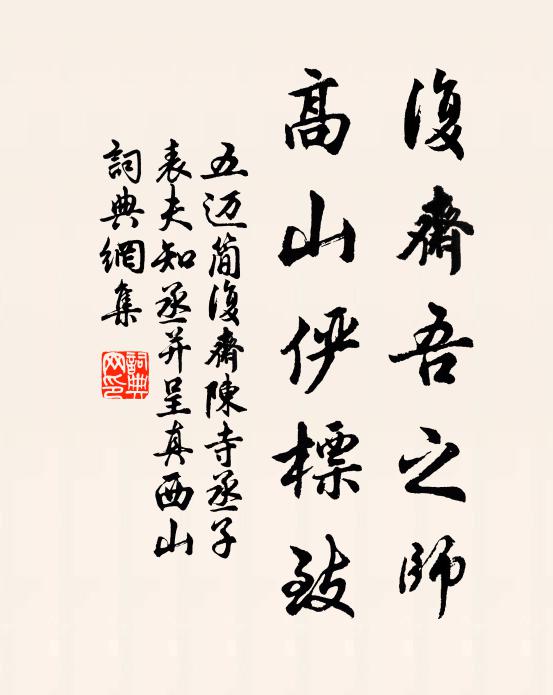 復齋吾之師
高山俨標致
五迈简復齋陳寺丞子
表夫知丞并呈真西山
詞典網集
詞典網印